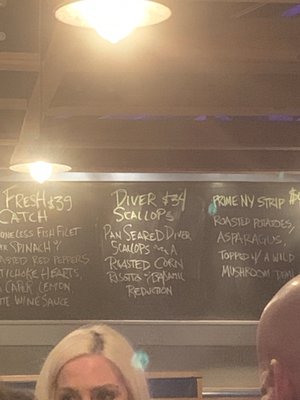 FRESH $39
CATCH
ONELESS FISH FILET
SPINACH
ASTED RED PEPPERS
TICHOKE HEARTS,
CAPER LEMON
ITE WINE SAUCE
DIVER $34
SCALLOPS
PAN SEARED DIVER
SCALLOPS A
ROASTED CORN
RISOTTO BALSAMIC
REDUCTION
PRIME NY STRIP $
ROASTED POTATOES,
ASPARAGUS,
TOPPED W/ A WILD
MUSHROOM DEMI